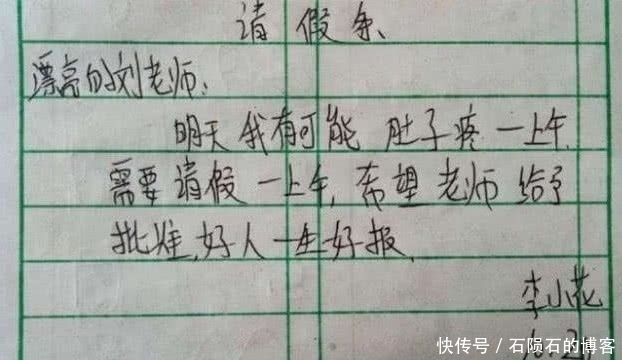 请假条
漂亮的刘老师:
明天我有可能 肚子疼一上午
需要请假一上午,希望老师给予
批准,好人一生好报.
李小花
快传号/石陨石的博客